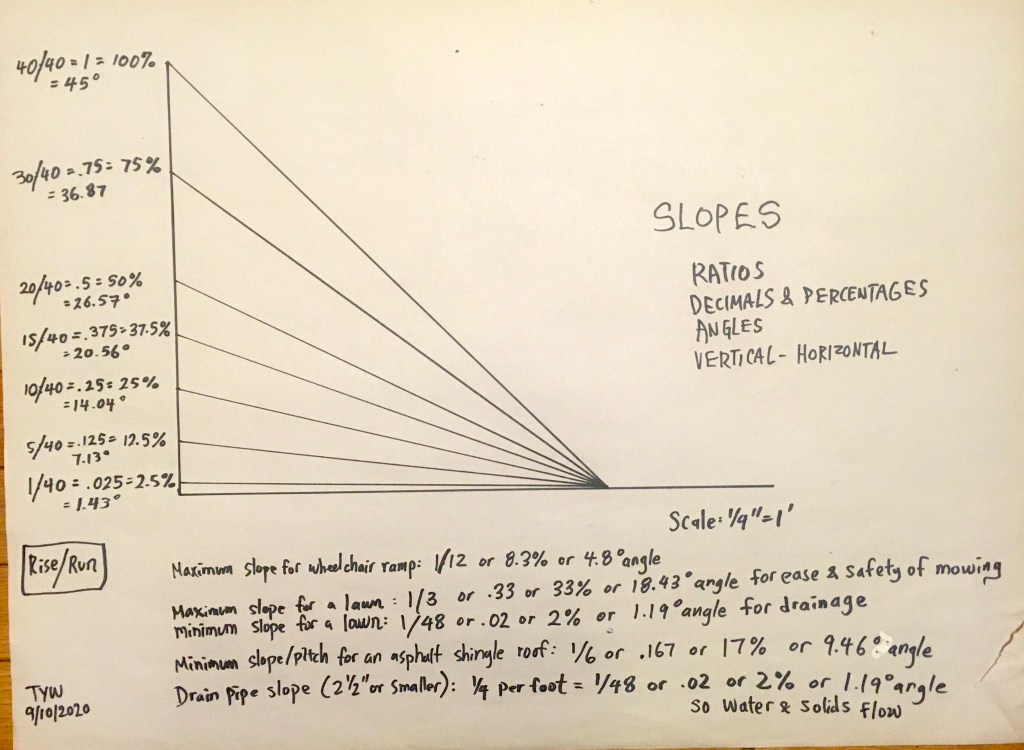 40/40 = 1 = 100%
= 45°
30/40 = .75 = 75%
= 36.87
20/40 = .5 = 50%
= 26.57°
15/40 = .375 = 37.5%
= 20.56°
10/40 = .25 = 25%
= 14.04°
5/40 = .125 = 12.5%
7.13°
1/40 = .025 = 2.5%
= 1.43°
SLOPES
RATIOS
DECIMALS & PERCENTAGES
ANGLES
VERTICAL - HORIZONTAL
Scale: 1/4" = 1'
Rise/Run
Maximum slope for wheelchair ramp: 1/12 or 8.3% or 4.8° angle
Maximum slope for a lawn: 1/3 or .33 or 33% or 18.43° angle for ease & safety of mowing
minimum slope for a lawn: 1/48 or .02 or 2% or 1.19° angle for drainage
Minimum slope/pitch for an asphalt shingle roof: 1/6 or .167 or 17% or 9.46° angle
Drain pipe slope (2 1/2" or smaller): 1/4 per foot = 1/48 or .02 or 2% or 1.19° angle
so water & solids flow
TYW
9/10/2020